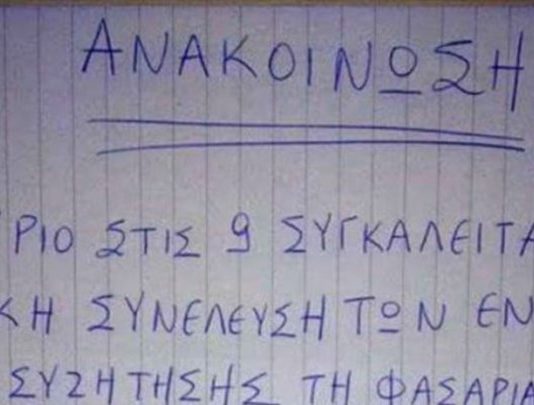 ΑΝΑΚΟΙΝΩΣΗ
ΡΙΟ ΣΤΙΣ 9 ΣΥΓΚΑΛΕΙΤΑ
ΚΗ ΣΥΝΕΛΕΥΣΗ ΤΩΝ ΕΝ
ΣΥΖΗΤΗΣΗΣ ΤΗ ΦΑΣΑΡΙΑ